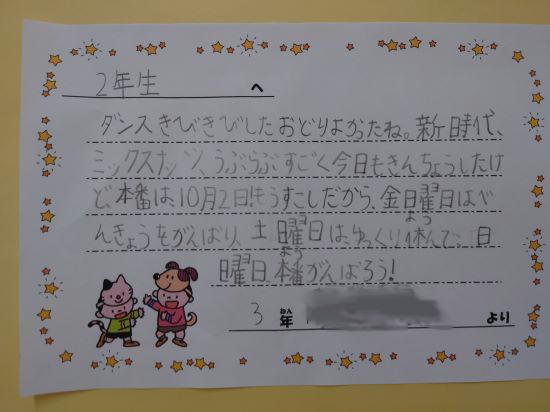 2年生 へ
ダンスきびきびしたおどりよかったね。新時代、
ミックスナッツ、うぶらぶすごく今日もきんちょうしたけ
ど、本番は10月2日!もうすこしだから、金曜日はべ
よう
んきょうをがんばり、土曜日はゆっくり休んで、日
よう
曜日本番がんばろう!
3年 より
ねん